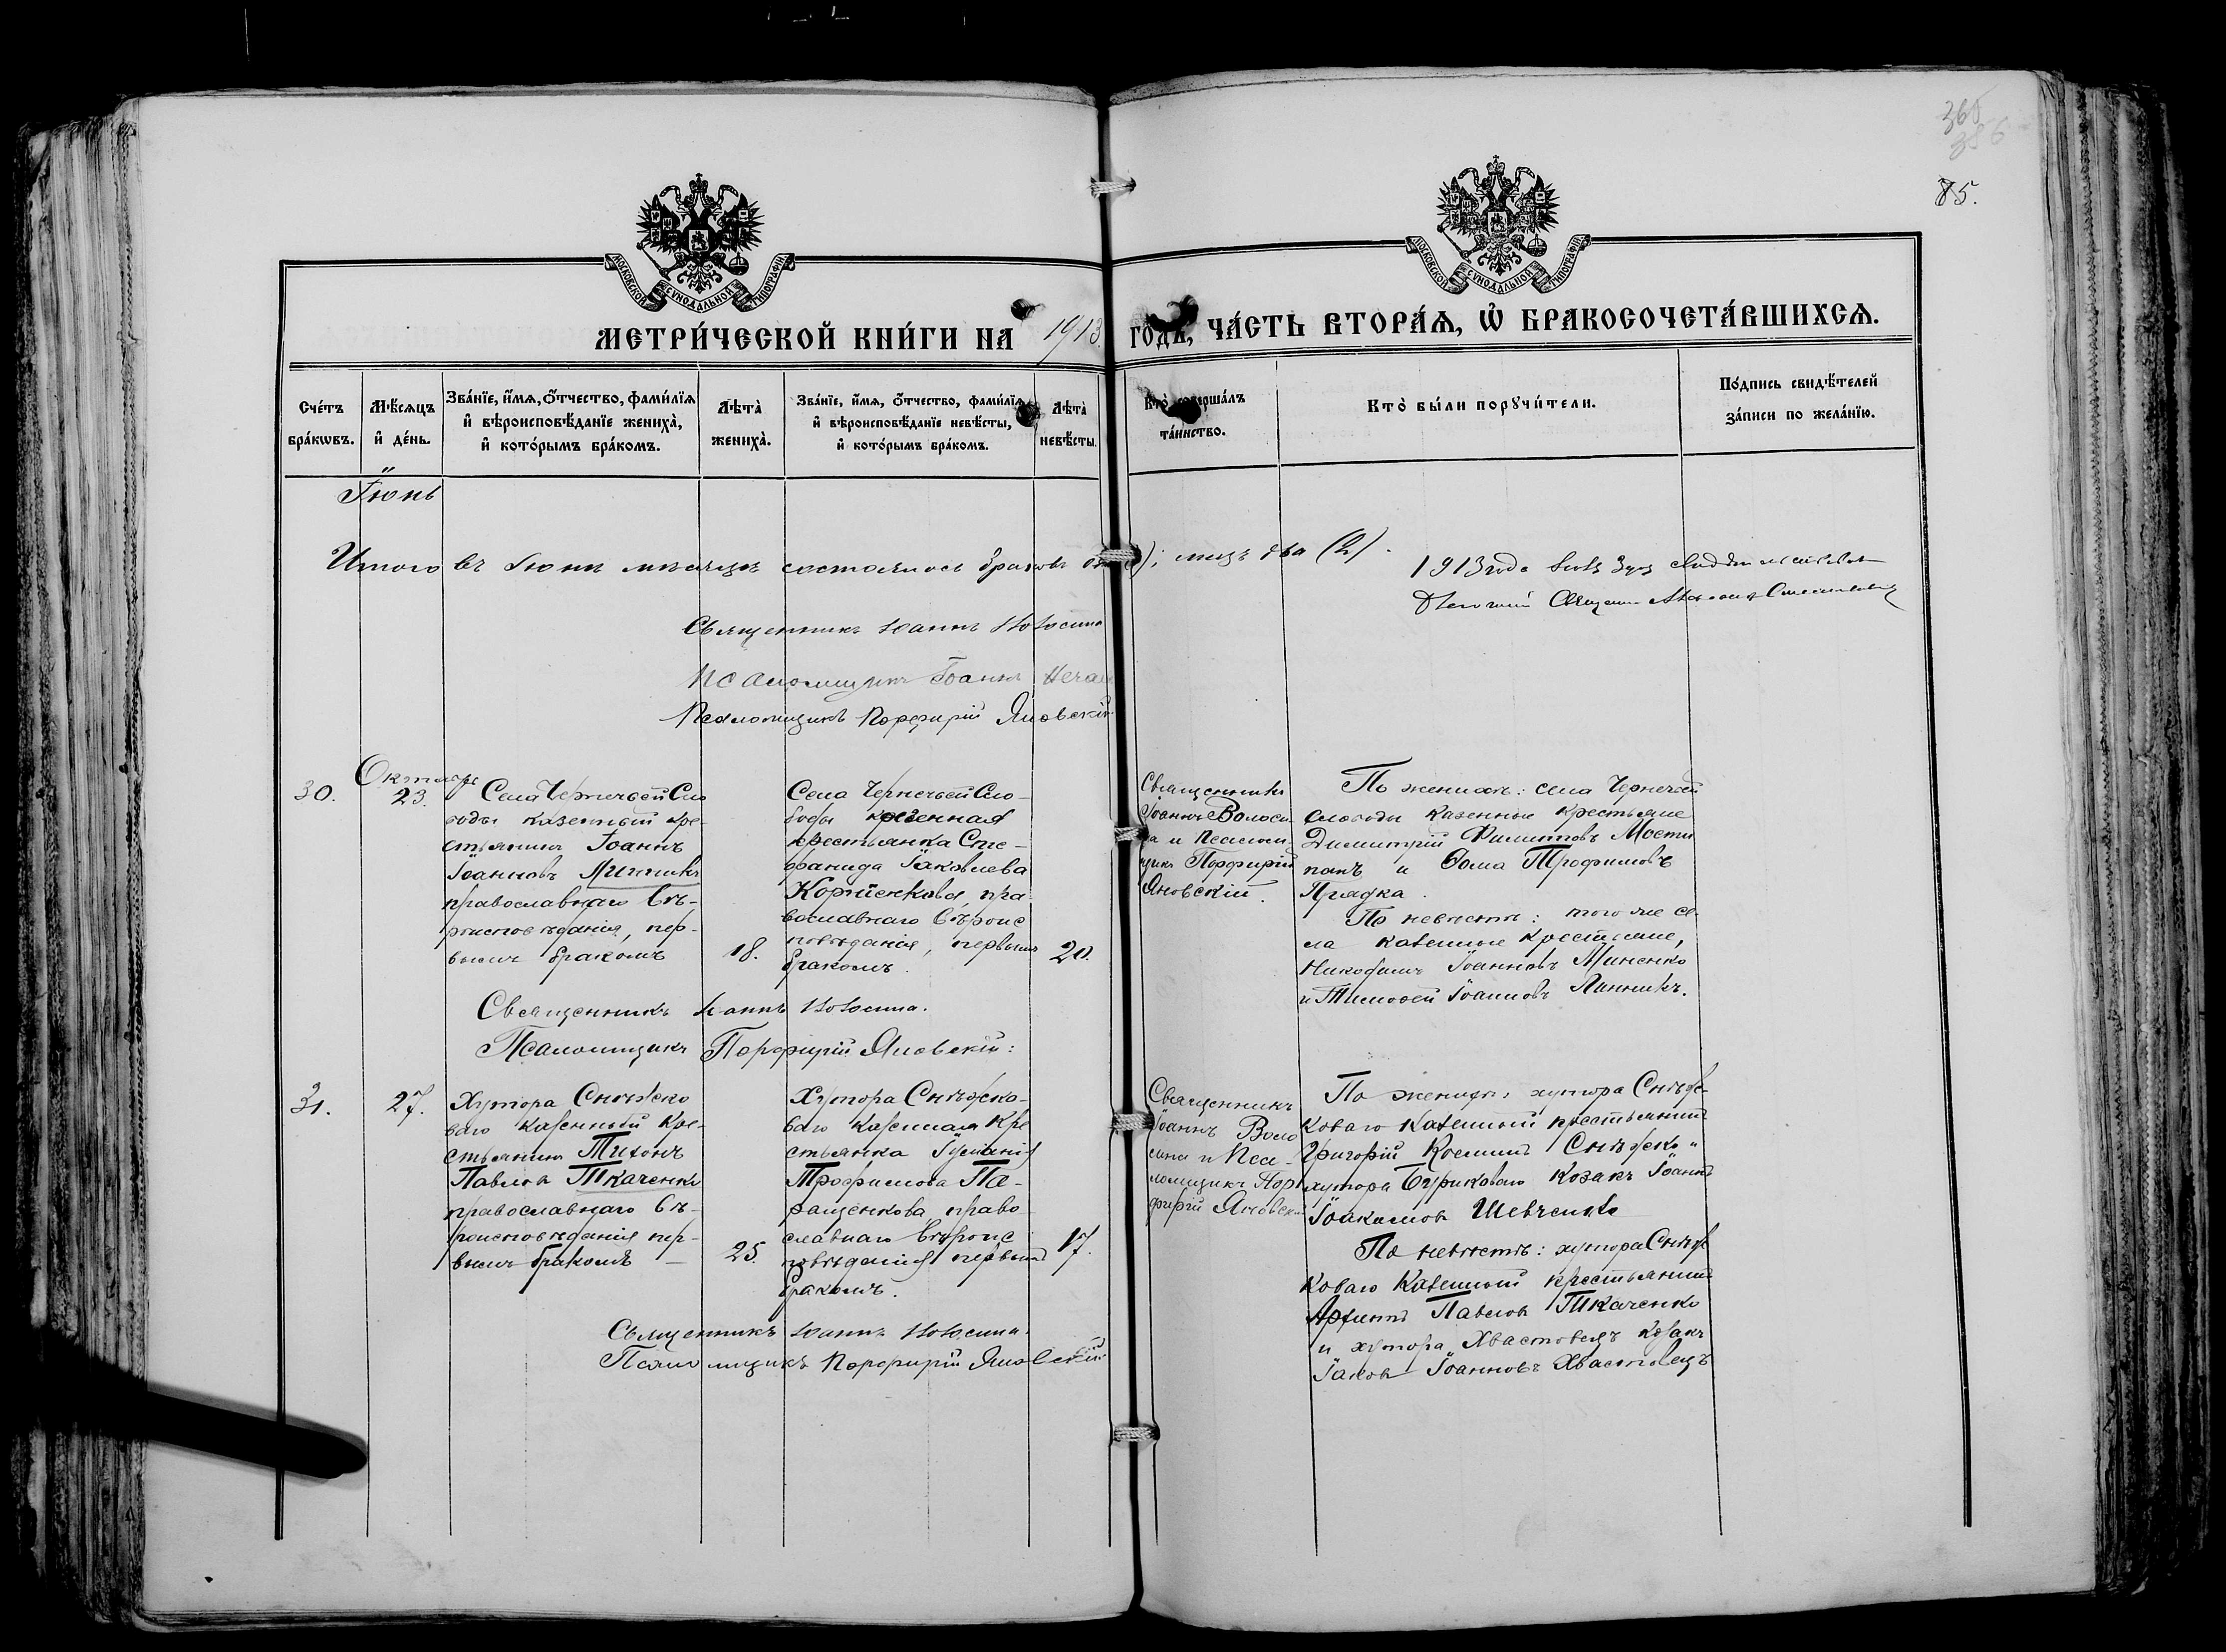 365
386
85.
МОСКОВСКОЙ СѴНОДАЛЬНОЙ ТИПОГРАФІИ
МОСКОВСКОЙ СѴНОДАЛЬНОЙ ТИПОГРАФІИ
МЕТРИ́ЧЕСКОЙ КНИ́ГИ НА 1913 ГОДЪ, ЧА́СТЬ ВТОРА́Ѧ, Ѡ҆ БРАКОСОЧЕТА́ВШИХСѦ.
Сче́тъ бра́кѡвъ.
Мѣ́сѧцъ и҆ де́нь.
Зва́нїе, и҆́мѧ, ѻ҆́тчество, фами́лїѧ
и҆ вѣроисповѣ́данїе жениха̀,
и҆ кото́рымъ бра́комъ.
Лѣта̀ жениха̀.
Зва́нїе, и҆́мѧ, ѻ҆́тчество, фами́лїѧ
и҆ вѣроисповѣ́данїе невѣ́сты,
и҆ кото́рымъ бра́комъ.
Лѣта̀ невѣ́сты.
Кто̀ соверша́лъ та́инство.
Кто̀ бы́ли порꙋчи́тели.
По́дпись свидѣ́телей
за́писи по жела́нїю.
Іюнь
Итого въ Іюнѣ мѣсяцѣ состоялось браковъ
лицъ два (2).
1913 года
Священникъ Іоаннъ Волосина
Псаломщикъ Іоаннъ
Псаломщикъ Порфирій Яновскій
Октябрь
30.
23.
Села Чернечьей Сло
боды казенный кре-
стьянинъ Іоаннъ
Іоанновъ Линникъ
православнаго вѣ-
роисповѣданія, пер-
вымъ бракомъ
18.
Села Чернечьей Сло-
боды казенная
крестьянка Сте-
фанида Іаковлева
Корніенкова, пра
вославнаго вѣроис
повѣданія, первымъ
бракомъ.
20.
Священникъ
Іоаннъ Волоси
на и Псалом
щикъ Порфирій
Яновскій.
По женихѣ: села Чернечьей
слободы казенные крестьяне
Димитрій Филипповъ Мости
панъ и Ѳома Трофимовъ
Прядка.
По невѣстѣ: того же се
ла казенные крестьяне,
Никодимъ Іоанновъ Миненко
и Тимоѳей Іоанновъ Линникъ.
Священникъ Іоаннъ Волосина.
Псаломщикъ Порфирій Яновскій:
31.
27.
Хутора Снѣжко
ваго казенный кре-
стьянинъ Тихонъ
Павловъ Ткаченко
православнаго вѣ-
роисповѣданія пер-
вымъ бракомъ —
25.
Хутора Снѣжко-
ваго казенная кре
стьянка Іуліанія
Трофимова Па-
ращенкова право
славнаго вѣроис
повѣданія первымъ
бракомъ.
17.
Священникъ
Іоаннъ Воло
сина и Пса-
ломщикъ Пор
фирій Яновскій
По женихѣ: хутора Снѣж-
коваго казенный крестьянинъ
Григорій Косминъ Снѣжко и
хутора Буриковаго козакъ Іоаннъ
Іоакимовъ Шевченко
По невѣстѣ: хутора Снѣж
коваго казенный крестьянинъ
Архиппъ Павловъ Ткаченко
и хутора Хвастовецъ козакъ
Іаковъ Іоанновъ Хвастовецъ
Священникъ Іоаннъ Волосина.
Псаломщикъ Порфирій Яновскій.